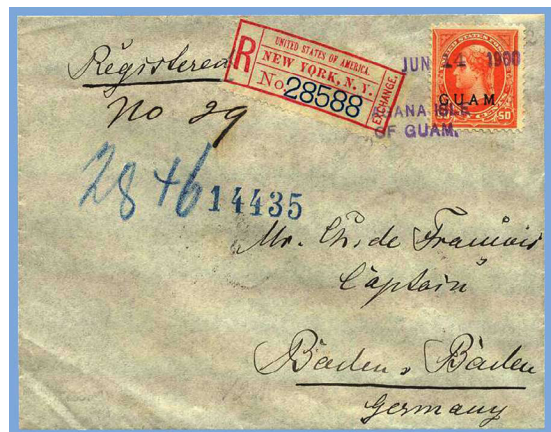 Registered
No 29
R
UNITED STATES OF AMERICA.
NEW YORK, N. Y.
No. 28588
EXCHANGE.
JUN 14 1900
GUAM
50
AGANA ISLE
OF GUAM.
28 + 6
14435
Mr. Ch. de François
Captain
Baden, Baden
Germany